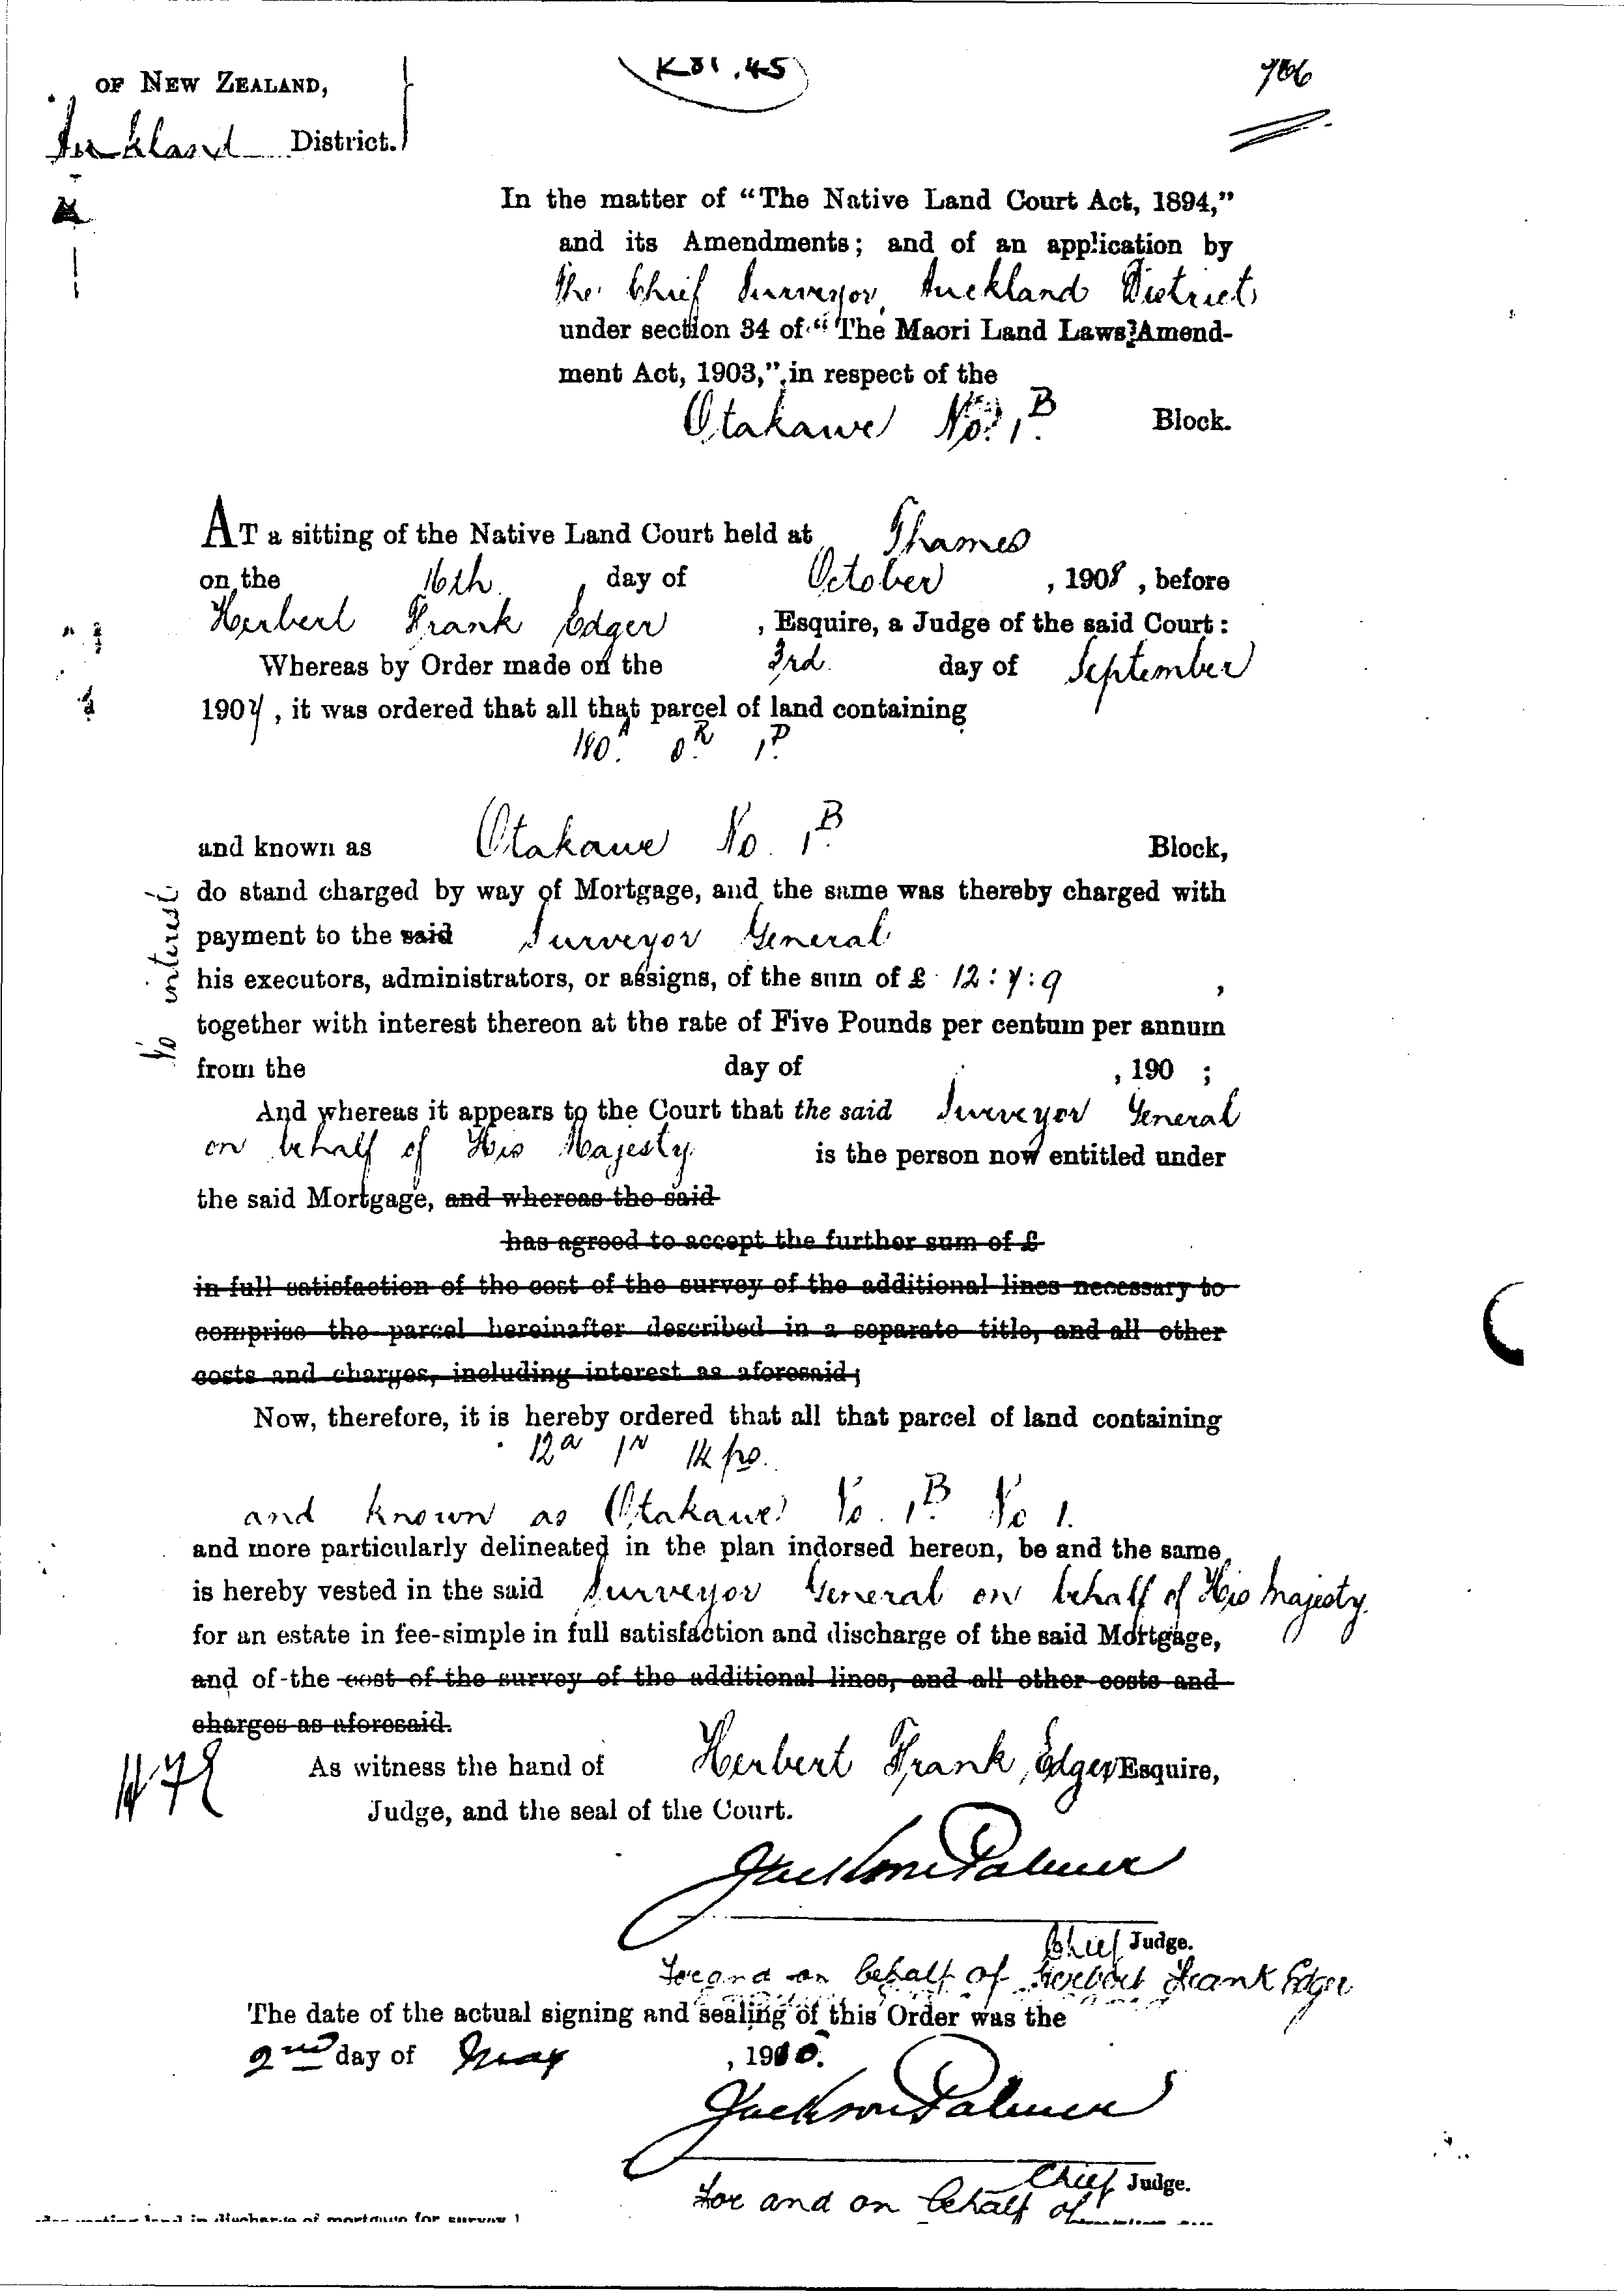 K31.45
706
OF NEW ZEALAND,
Auckland District.
In the matter of “The Native Land Court Act, 1894,”
and its Amendments; and of an application by
the Chief Surveyor, Auckland District
under section 34 of “The Maori Land Laws Amend-
ment Act, 1903,” in respect of the
Otakawe No. 1B. Block.
AT a sitting of the Native Land Court held at Thames
on the 16th day of October, 1908, before
Herbert Frank Edger, Esquire, a Judge of the said Court:
Whereas by Order made on the 3rd day of September
1907, it was ordered that all that parcel of land containing
180A. 0R. 1P.
and known as Otakawe No. 1B. Block,
do stand charged by way of Mortgage, and the same was thereby charged with
payment to the said Surveyor General
his executors, administrators, or assigns, of the sum of £ 12:7:9,
together with interest thereon at the rate of Five Pounds per centum per annum
No interest
from the day of , 190 ;
And whereas it appears to the Court that the said Surveyor General
on behalf of His Majesty is the person now entitled under
the said Mortgage, and whereas the said
has agreed to accept the further sum of £
in full satisfaction of the cost of the survey of the additional lines necessary to
comprise the parcel hereinafter described in a separate title, and all other
costs and charges, including interest as aforesaid;
Now, therefore, it is hereby ordered that all that parcel of land containing
12a 1r 14 ps.
and known as Otakawe No. 1B. No 1.
and more particularly delineated in the plan indorsed hereon, be and the same
is hereby vested in the said Surveyor General on behalf of His Majesty
for an estate in fee-simple in full satisfaction and discharge of the said Mortgage,
and of the cost of the survey of the additional lines, and all other costs and
charges as aforesaid.
As witness the hand of Herbert Frank Edger Esquire,
Judge, and the seal of the Court.
Jackson Palmer
Chief Judge.
For and on behalf of Herbert Frank Edger
The date of the actual signing and sealing of this Order was the
2nd day of May, 1910.
Jackson Palmer
Chief Judge.
For and on behalf of
vesting land in discharge of mortgage for survey.]